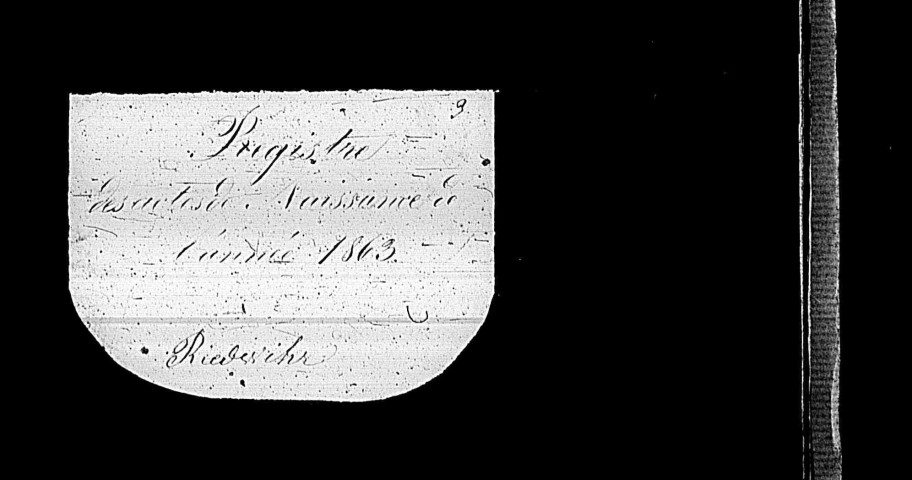 9
Régistre
des actes de Naissance de
l'année 1863
Riedwihr